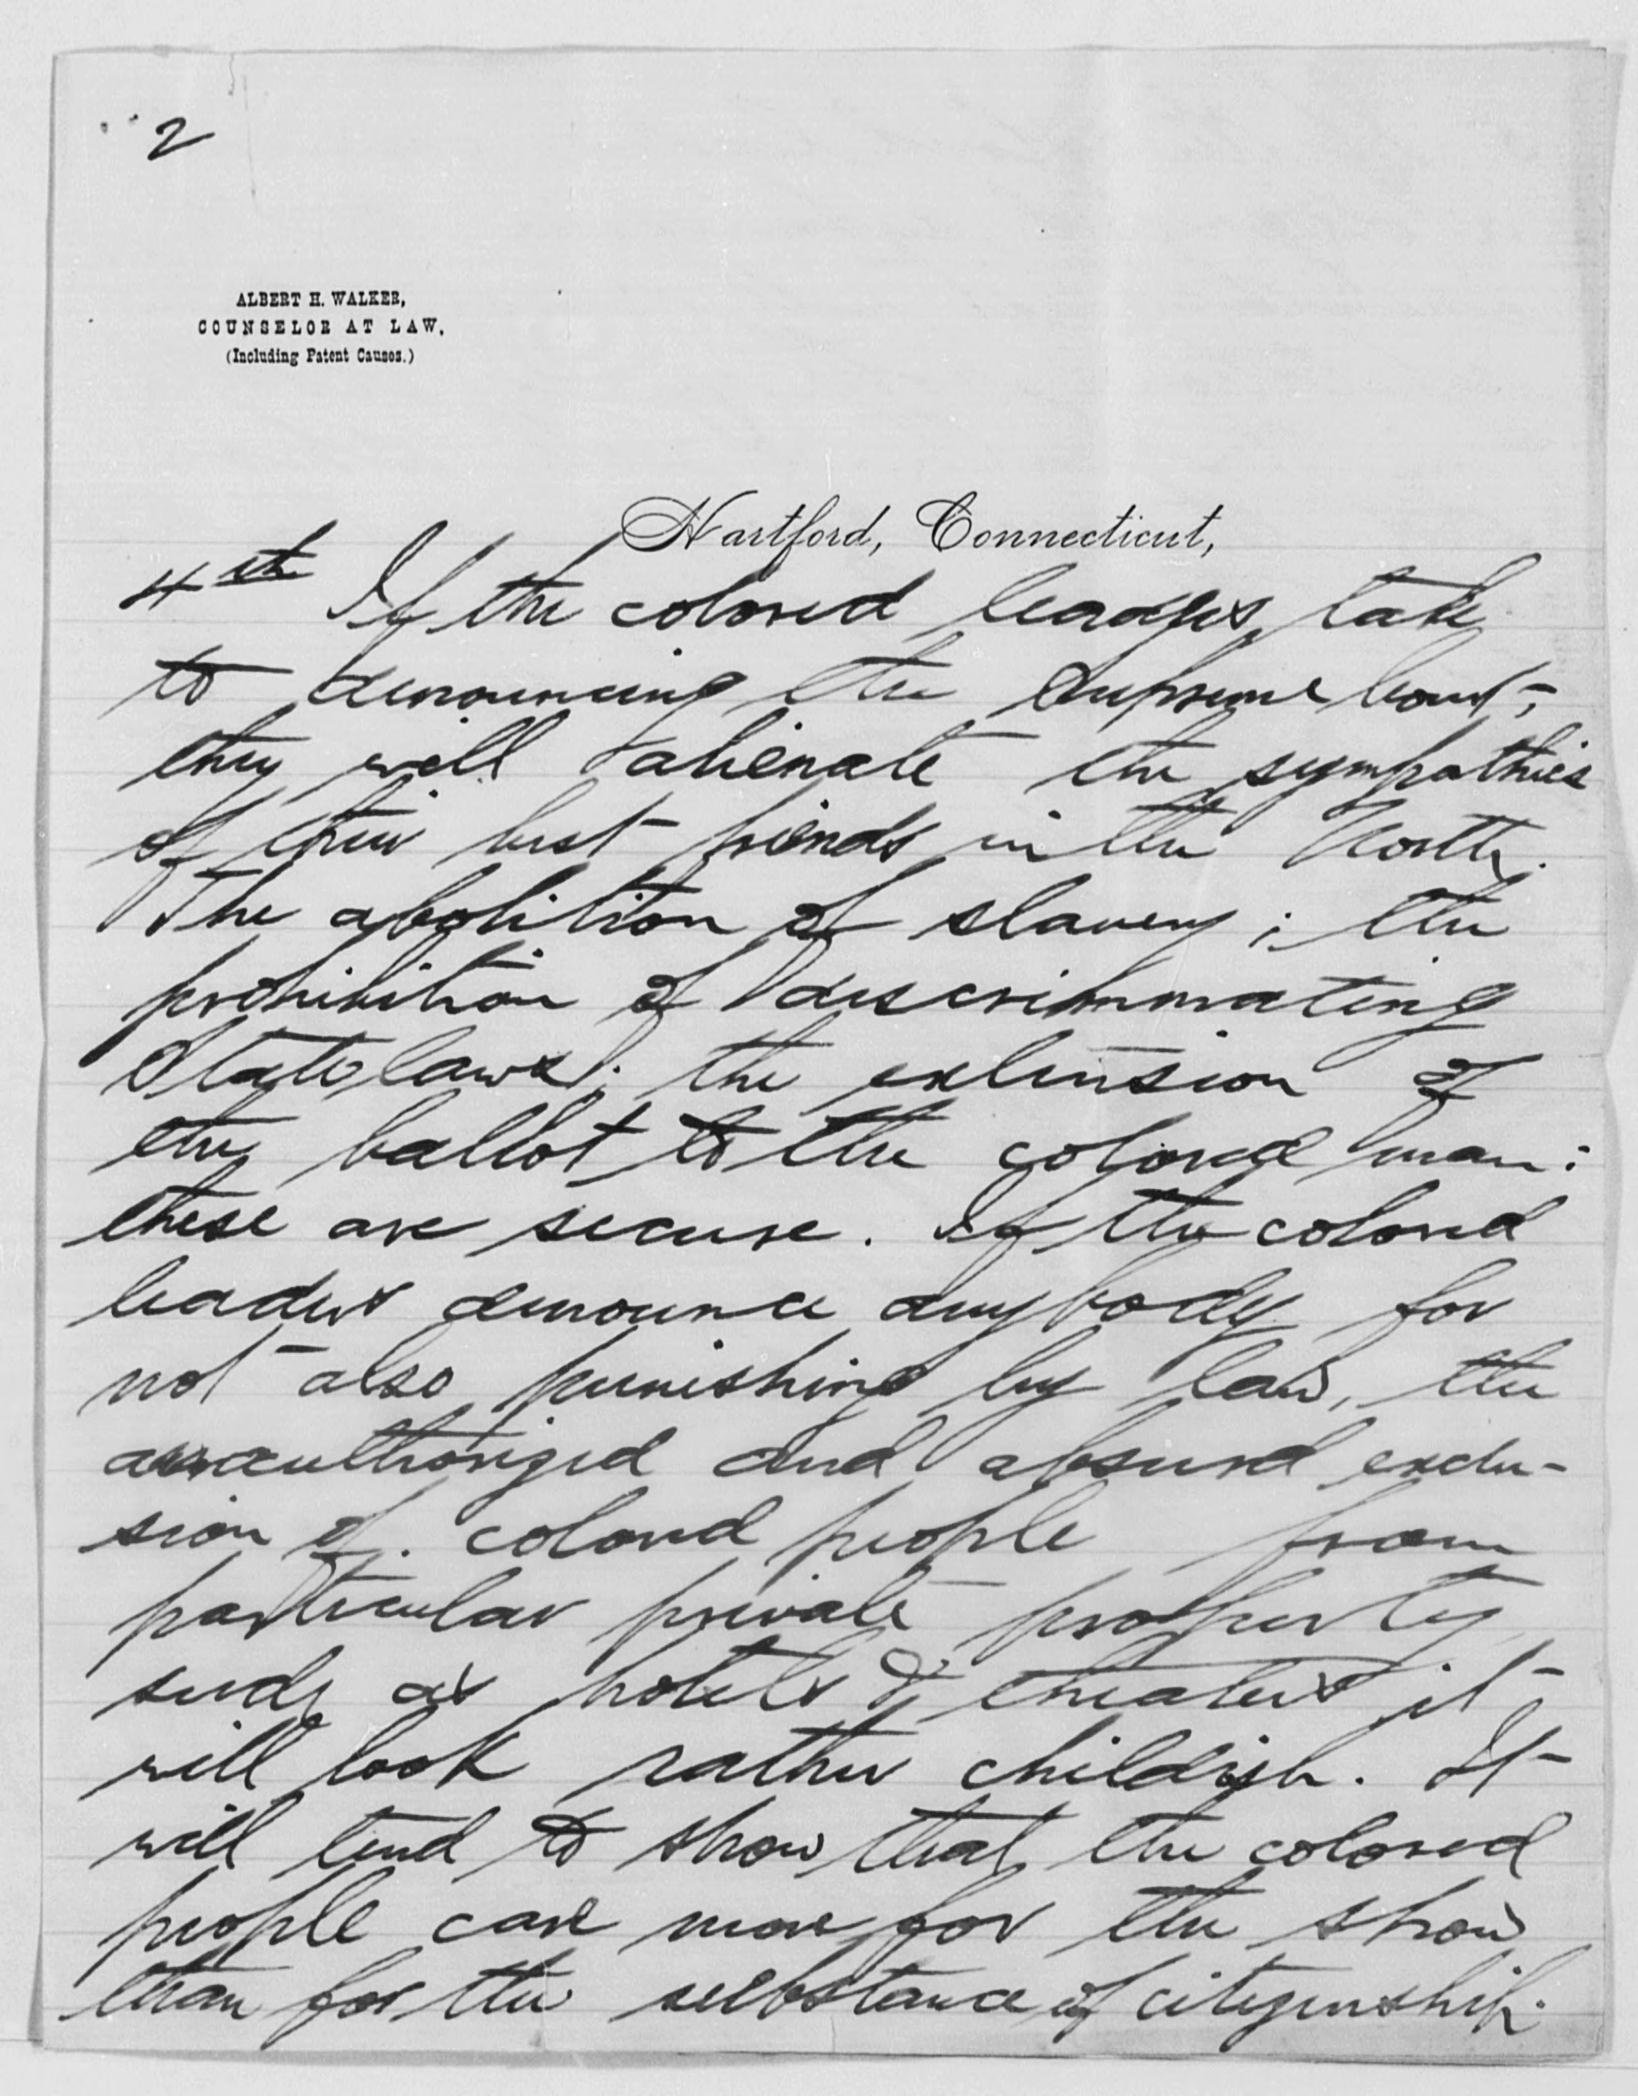 2
ALBERT H. WALKER,
COUNSELOR AT LAW,
(Including Patent Causes.)
Hartford, Connecticut,
4th If the colored leaders take
to denouncing the Supreme Court,
they will alienate the sympathies
of their best friends in the North.
The abolition of slavery; the
prohibition of discriminating
State laws; the extension of
the ballot to the colored man:
these are secure. If the colored
leaders denounce anybody for
not also punishing by law, the
unauthorized and absurd exclu-
sion of colored people from
particular private property
such as hotels & theaters it
will look rather childish. It
will tend to show that the colored
people care more for the show
than for the substance of citizenship.